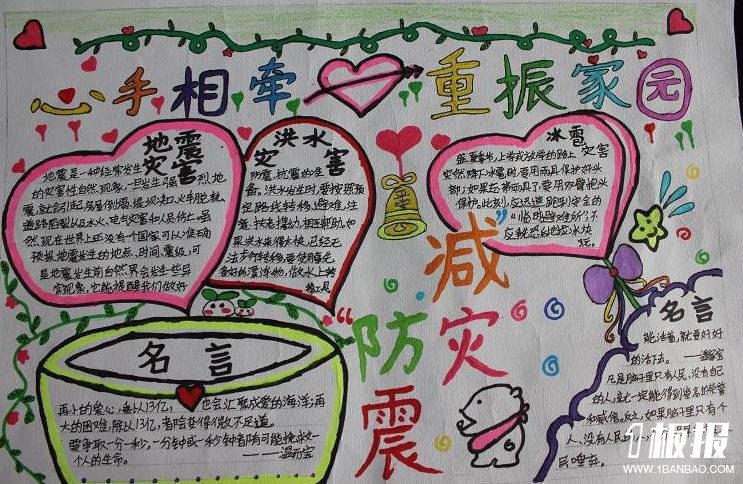 心手相牵 重振家园
地震灾害
地震是一种经常发生
的灾害性自然现象,一旦发生强烈地
震,就会引起房屋倒塌、
道路断裂以及水火、电气灾害和人员伤亡。虽
然,现在世界上还没有一个国家可以准确
预报地震发生的地点、时间、震级,可
是地震发生前自然界会发生些异
常现象,它能提醒我们做好
洪水灾害
防震、抗震的准
备。洪水发生时,要按照预
定路线转移,避难,注
意,扶老携幼,相互帮助。如
果洪水来得太快,已经无
法步行转移,要使用事先
备好的漂浮物,做水上转
移工具
冰雹灾害
上学或放学的路上
突然降下冰雹时,要用雨具保护好头
部;如果不带雨具,要用双臂抱头
保护。此刻,应迅速跑到安全的
“临时避难所”,不
应就恐地捡冰块
玩。
“防震减灾”
名言
再小的爱心,乘以13亿,也会汇聚成爱的海洋;再
大的困难,除以13亿,都会变得微不足道。
要争取一分一秒,一分钟或一秒钟都有可能挽救一
个人的生命。
——温家宝
名言
能活着,就要好好
的活下去。——温家宝
凡是脑子里只有人民、没有自己
的人,就一定能得到崇高的荣誉
和威信。反之,如果脑子里只有个
人、没有人民的人,
民唾弃。
1板报
WWW.1BANBAO.COM